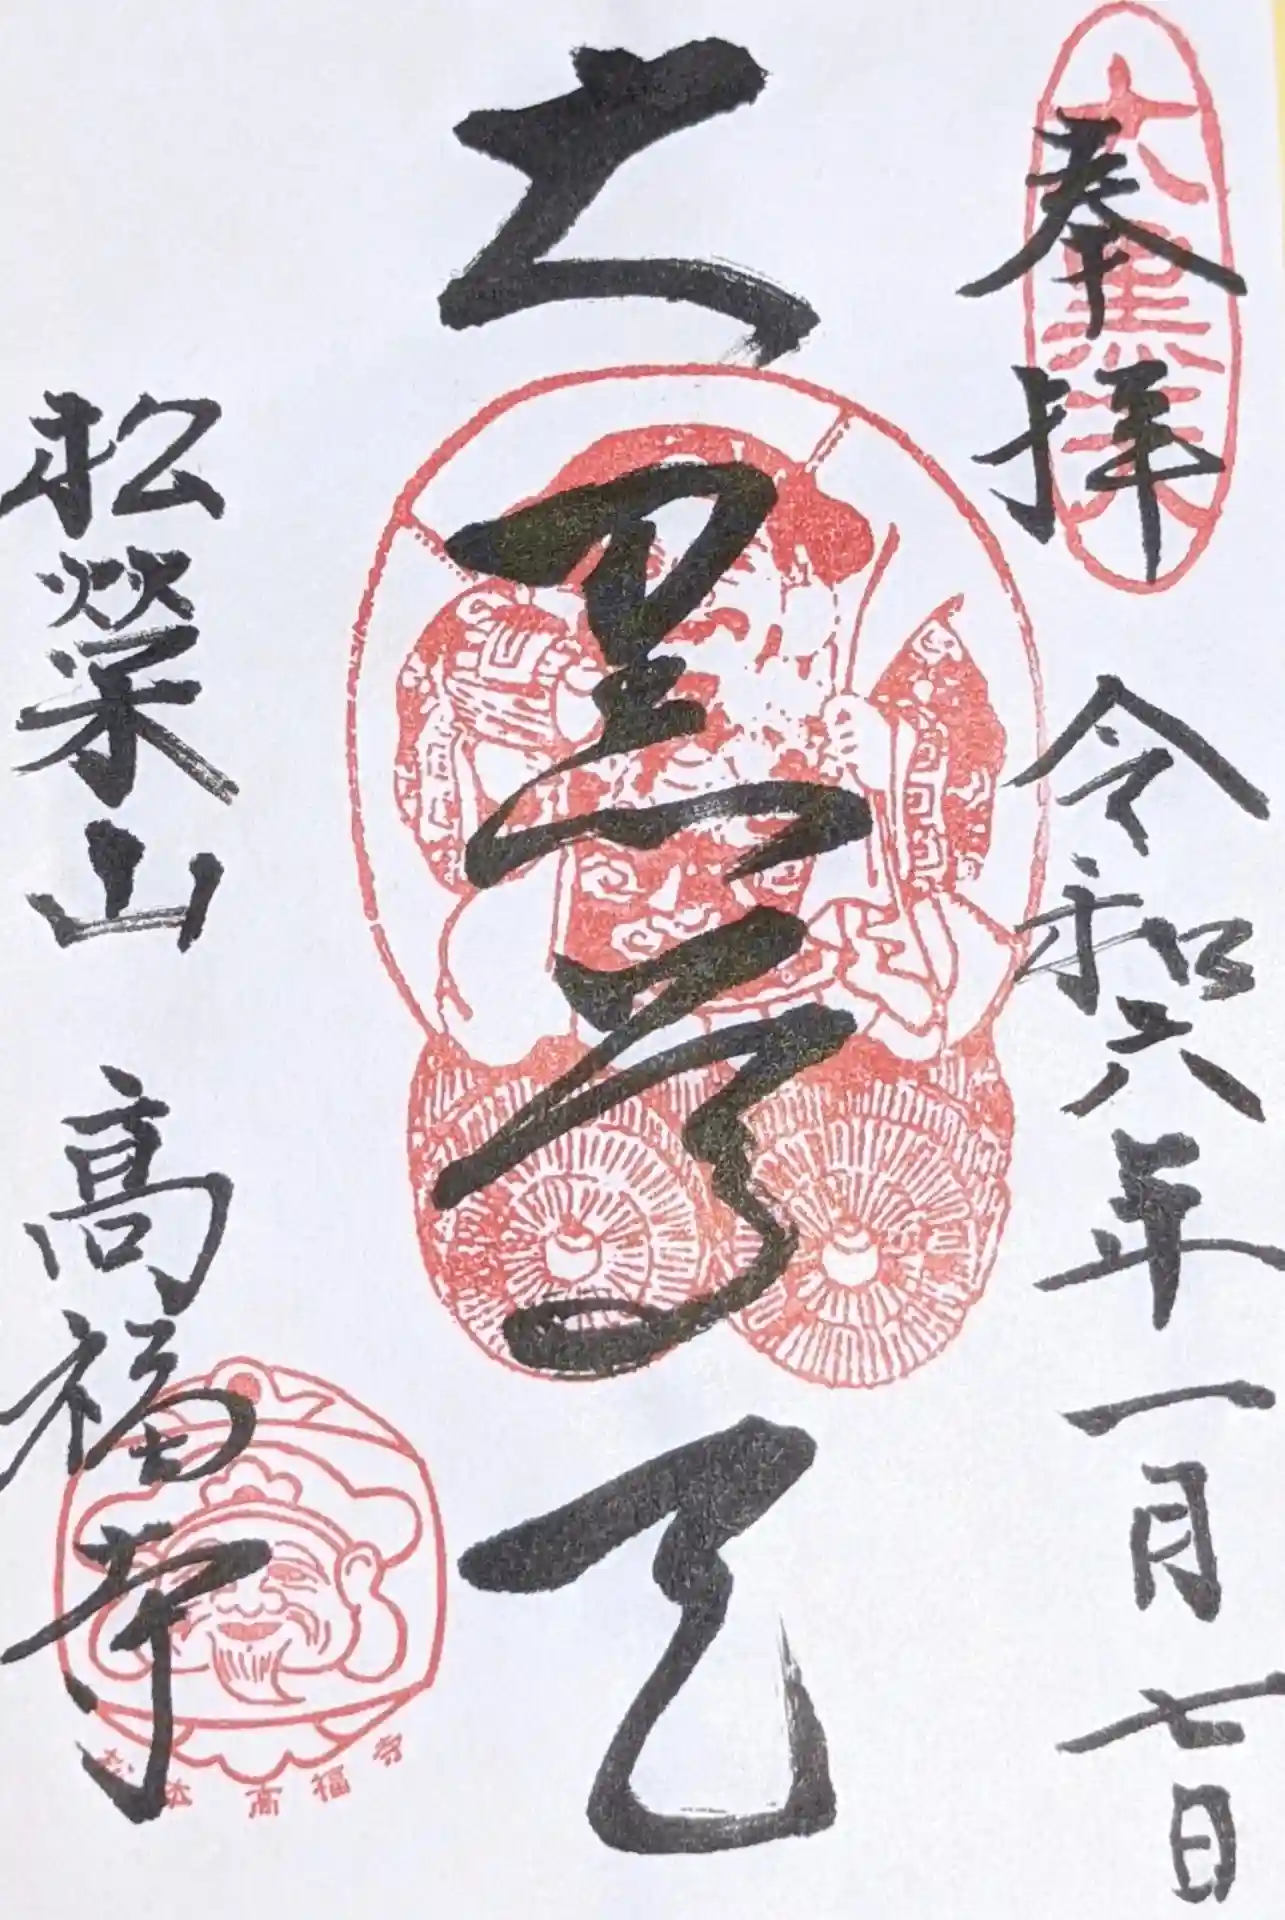 大黒天
奉拝 令和六年一月七日
大黒尊天
松榮山 高福寺
松本高福寺